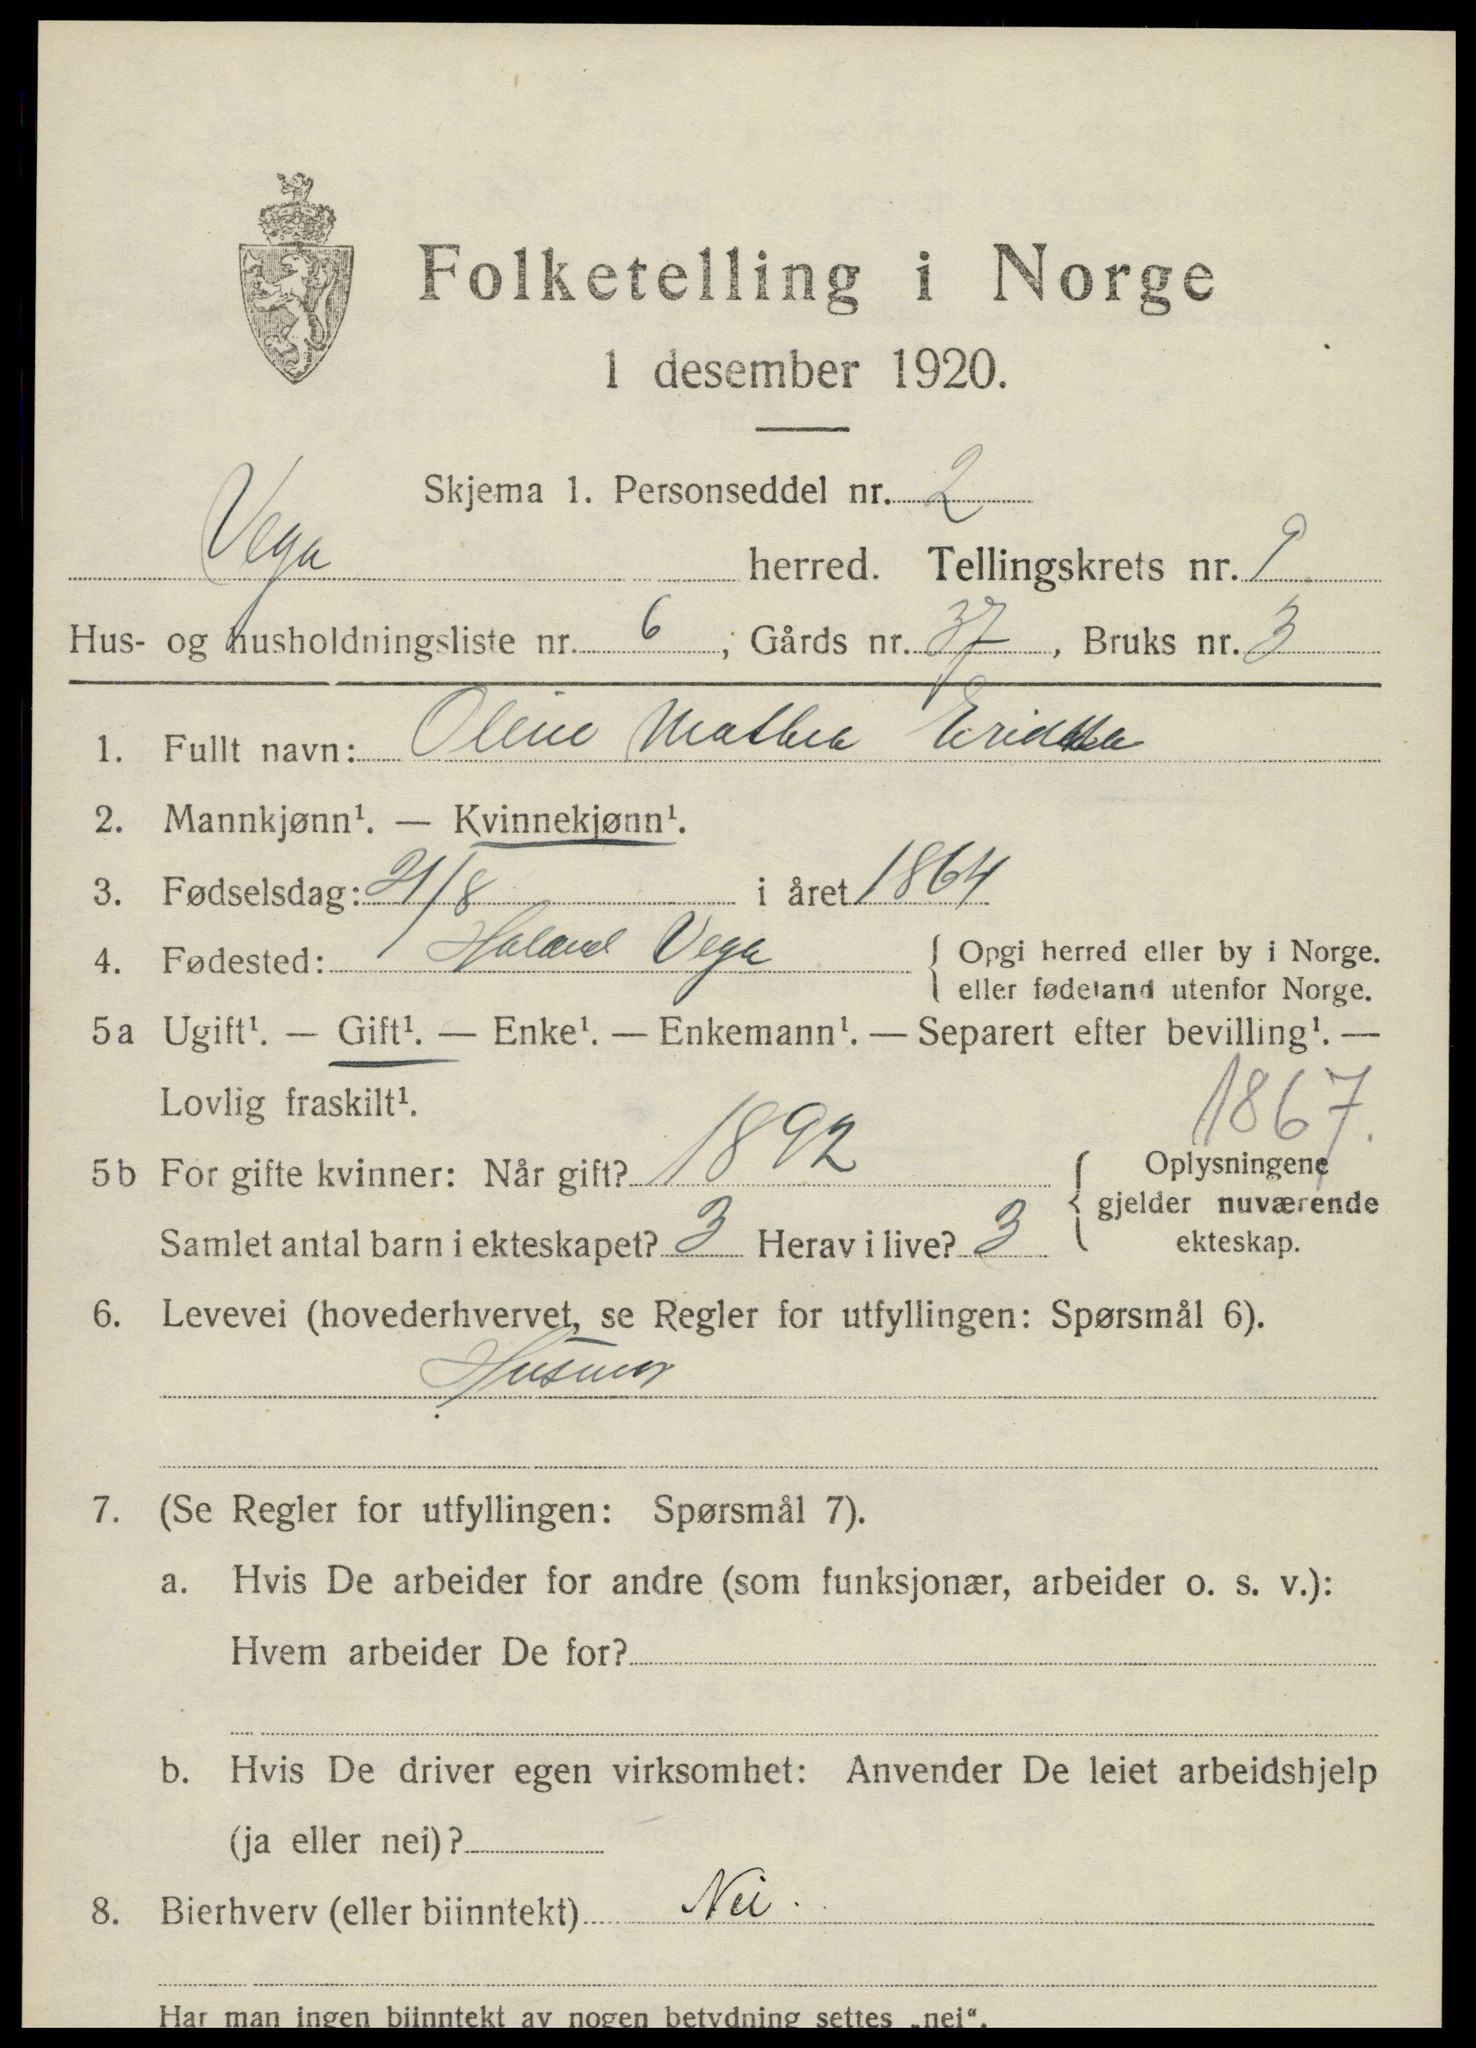 Folketelling i Norge
1 desember 1920.
Skjema 1. Personseddel nr. 2
Vega herred. Tellingskrets nr. 9
Hus- og husholdningsliste nr. 6, Gårds nr. 37, Bruks nr. 3
1. Fullt navn: Oline Mathea
2. Mannkjønn¹. — Kvinnekjønn¹.
3. Fødselsdag: 21/8 i året 1864
4. Fødested: Holand Vega { Opgi herred eller by i Norge.
eller fødeland utenfor Norge.
5a Ugift¹. — Gift¹. — Enke¹. — Enkemann¹. — Separert efter bevilling¹. —
Lovlig fraskilt¹. 1867.
5b For gifte kvinner: Når gift? 1892 { Oplysningene
gjelder nuværende
Samlet antal barn i ekteskapet? 3 Herav i live? 3 ekteskap.
6. Levevei (hovederhvervet, se Regler for utfyllingen: Spørsmål 6).
Husmor
7. (Se Regler for utfyllingen: Spørsmål 7).
a. Hvis De arbeider for andre (som funksjonær, arbeider o. s. v.):
Hvem arbeider De for?
b. Hvis De driver egen virksomhet: Anvender De leiet arbeidshjelp
(ja eller nei)?
8. Bierhverv (eller biinntekt) Nei.
Har man ingen biinntekt av nogen betydning settes „nei“.